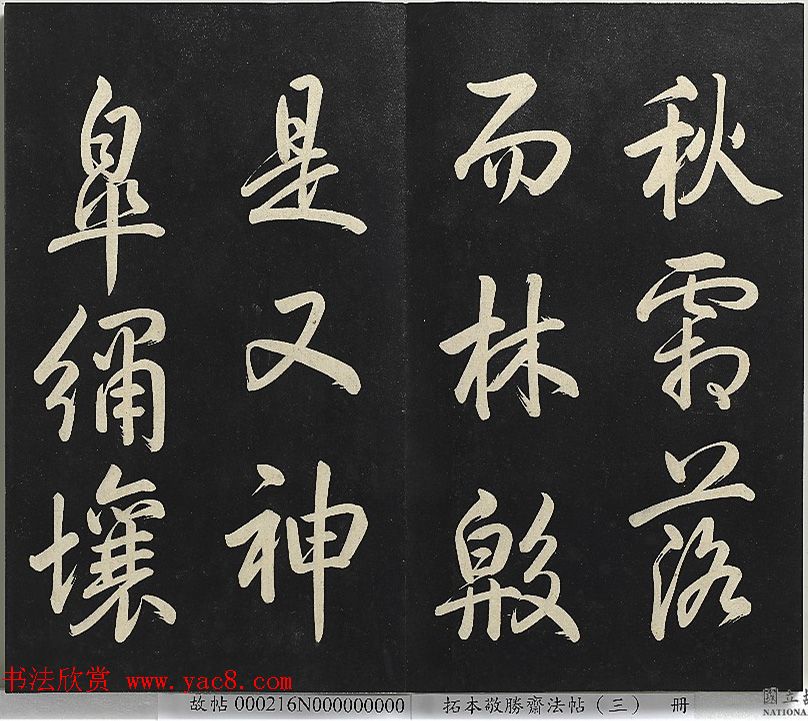 秋霜落
而林殿
是又神
皐繩壤
书法欣赏 www.yac8.com
故帖000216N000000000
拓本敬勝齋法帖（三） 册
國立
NATIONA